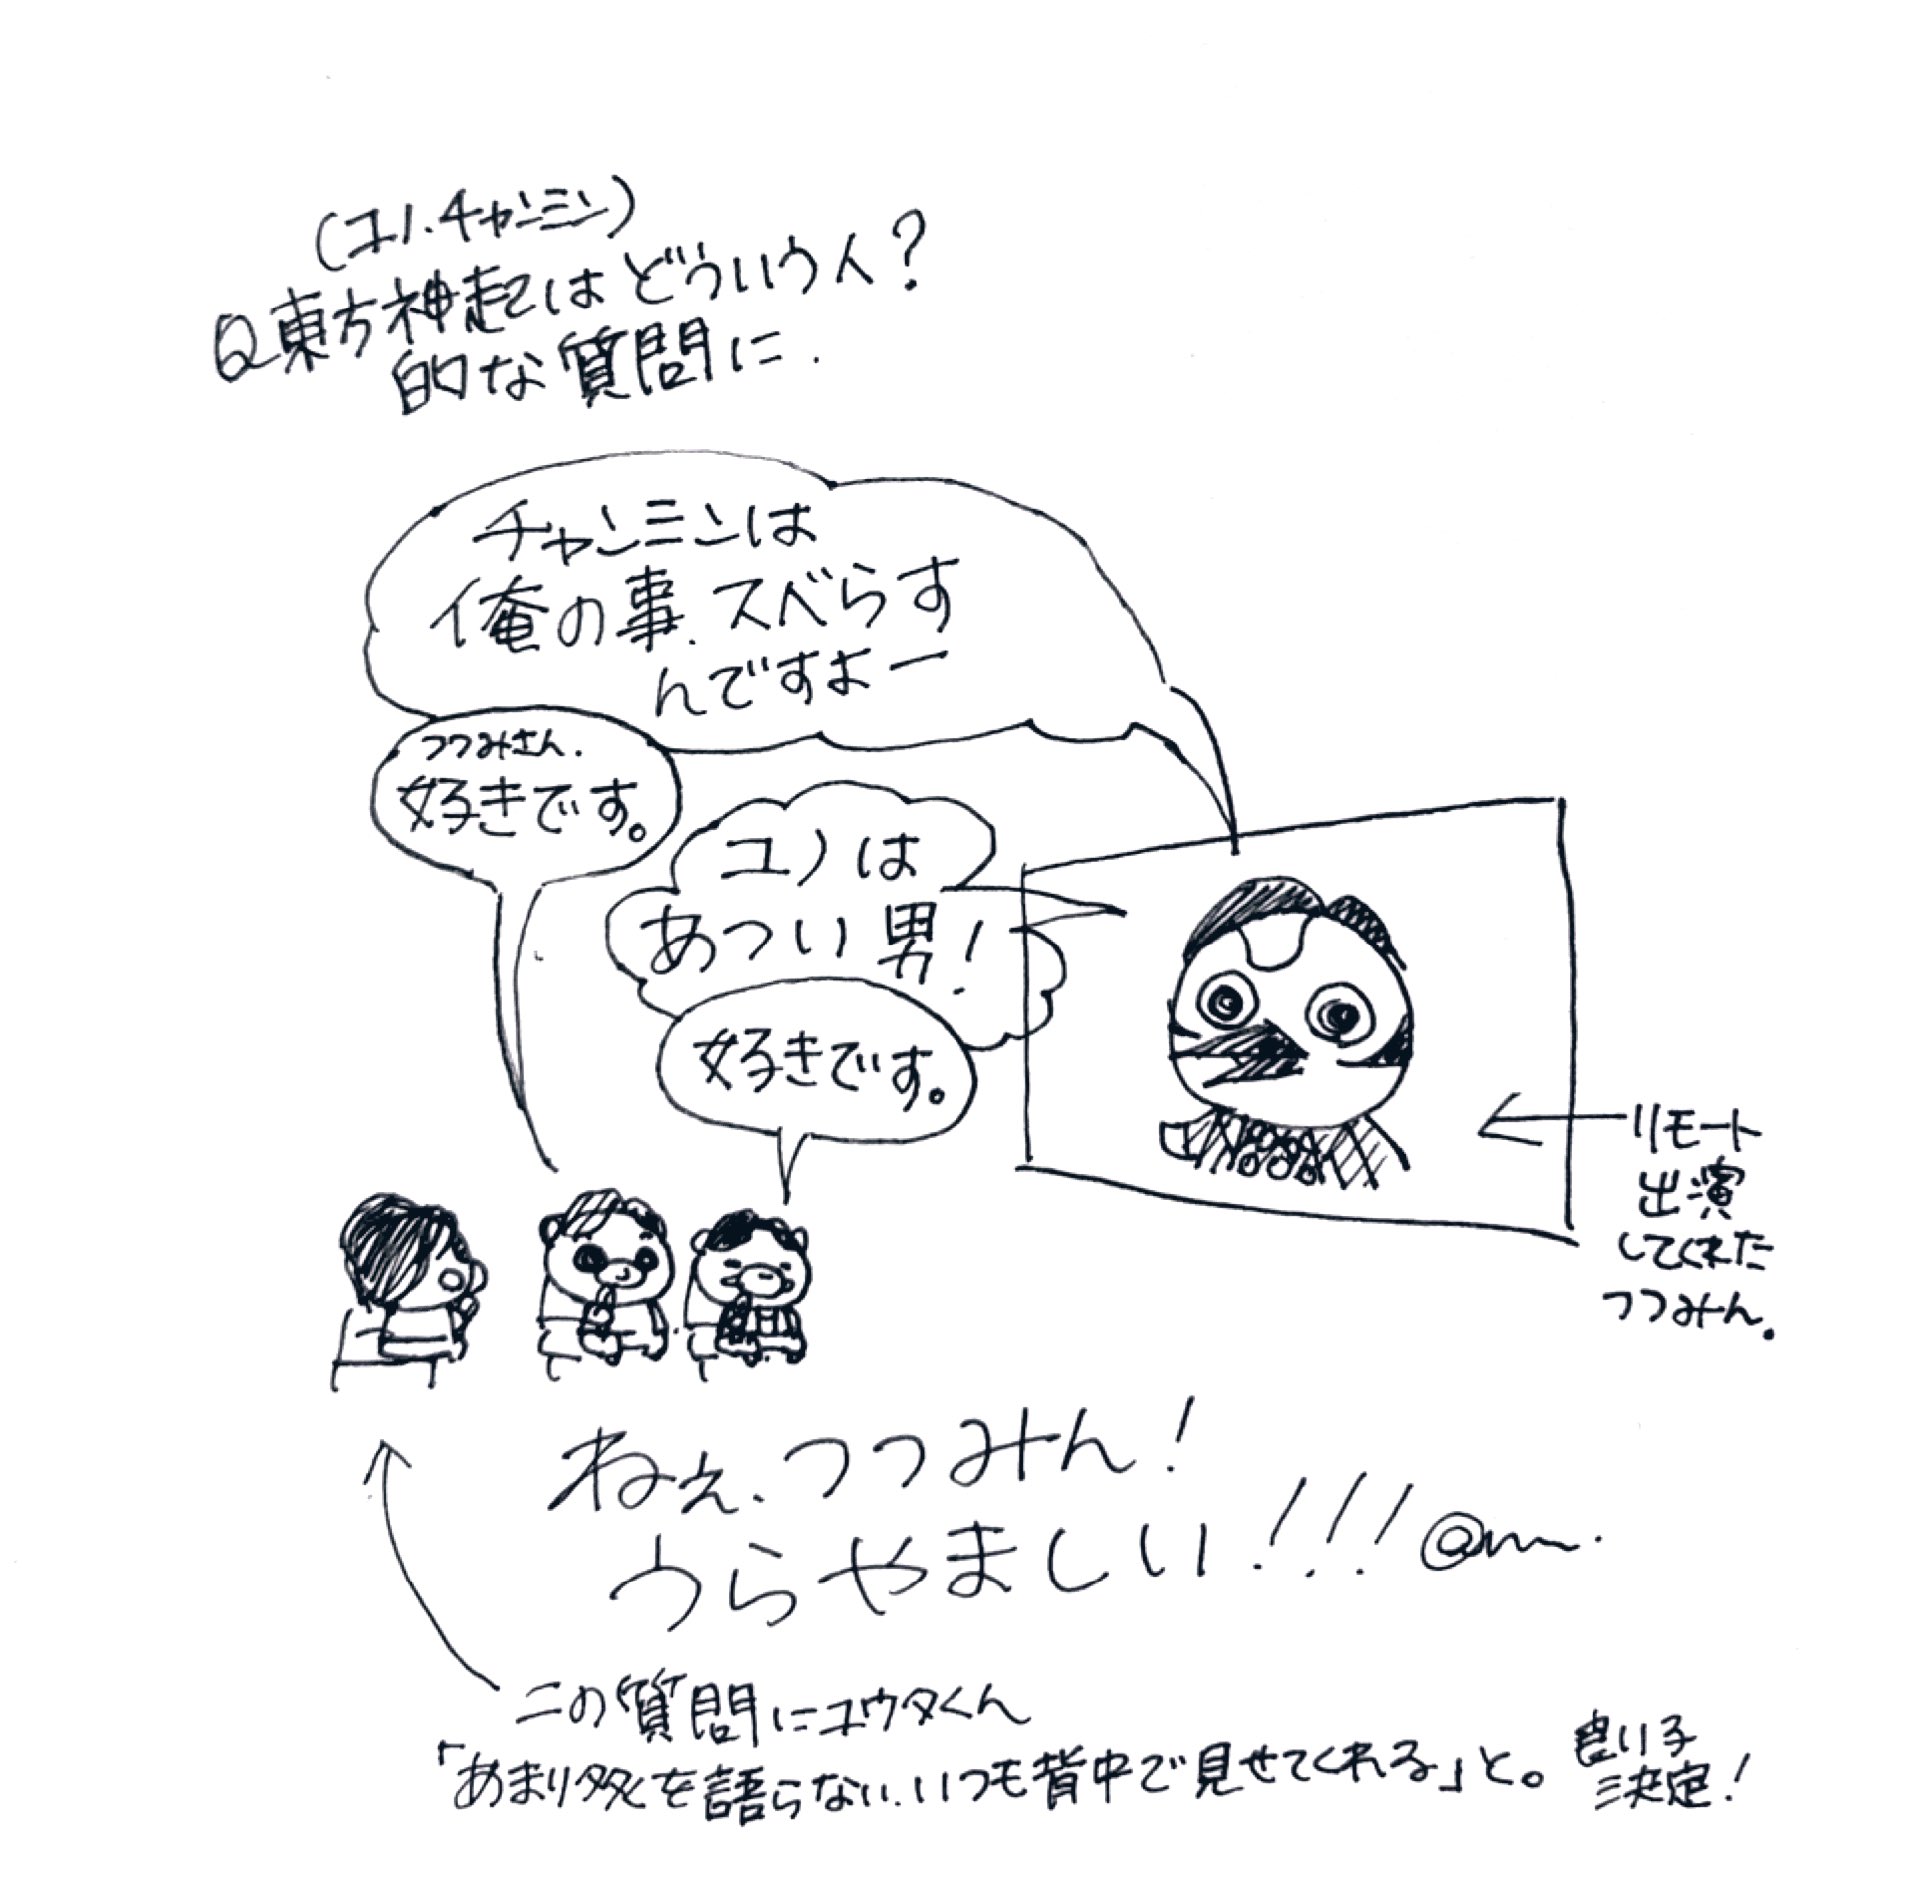 (ユノ.チャンミン)
Q東方神起はどういう人?
的な質問に.
チャンミンは
俺の事.スベらす
んですよー
つつみさん.
好きです。
ユノは
あつい男!
好きです。
リモート
出演
してくれた
つつみん.
ねぇ.つつみん!
うらやましい!!!
この質問にユウタくん
「あまり多くを語らない.いつも背中で見せてくれる」と。
良い子
決定!